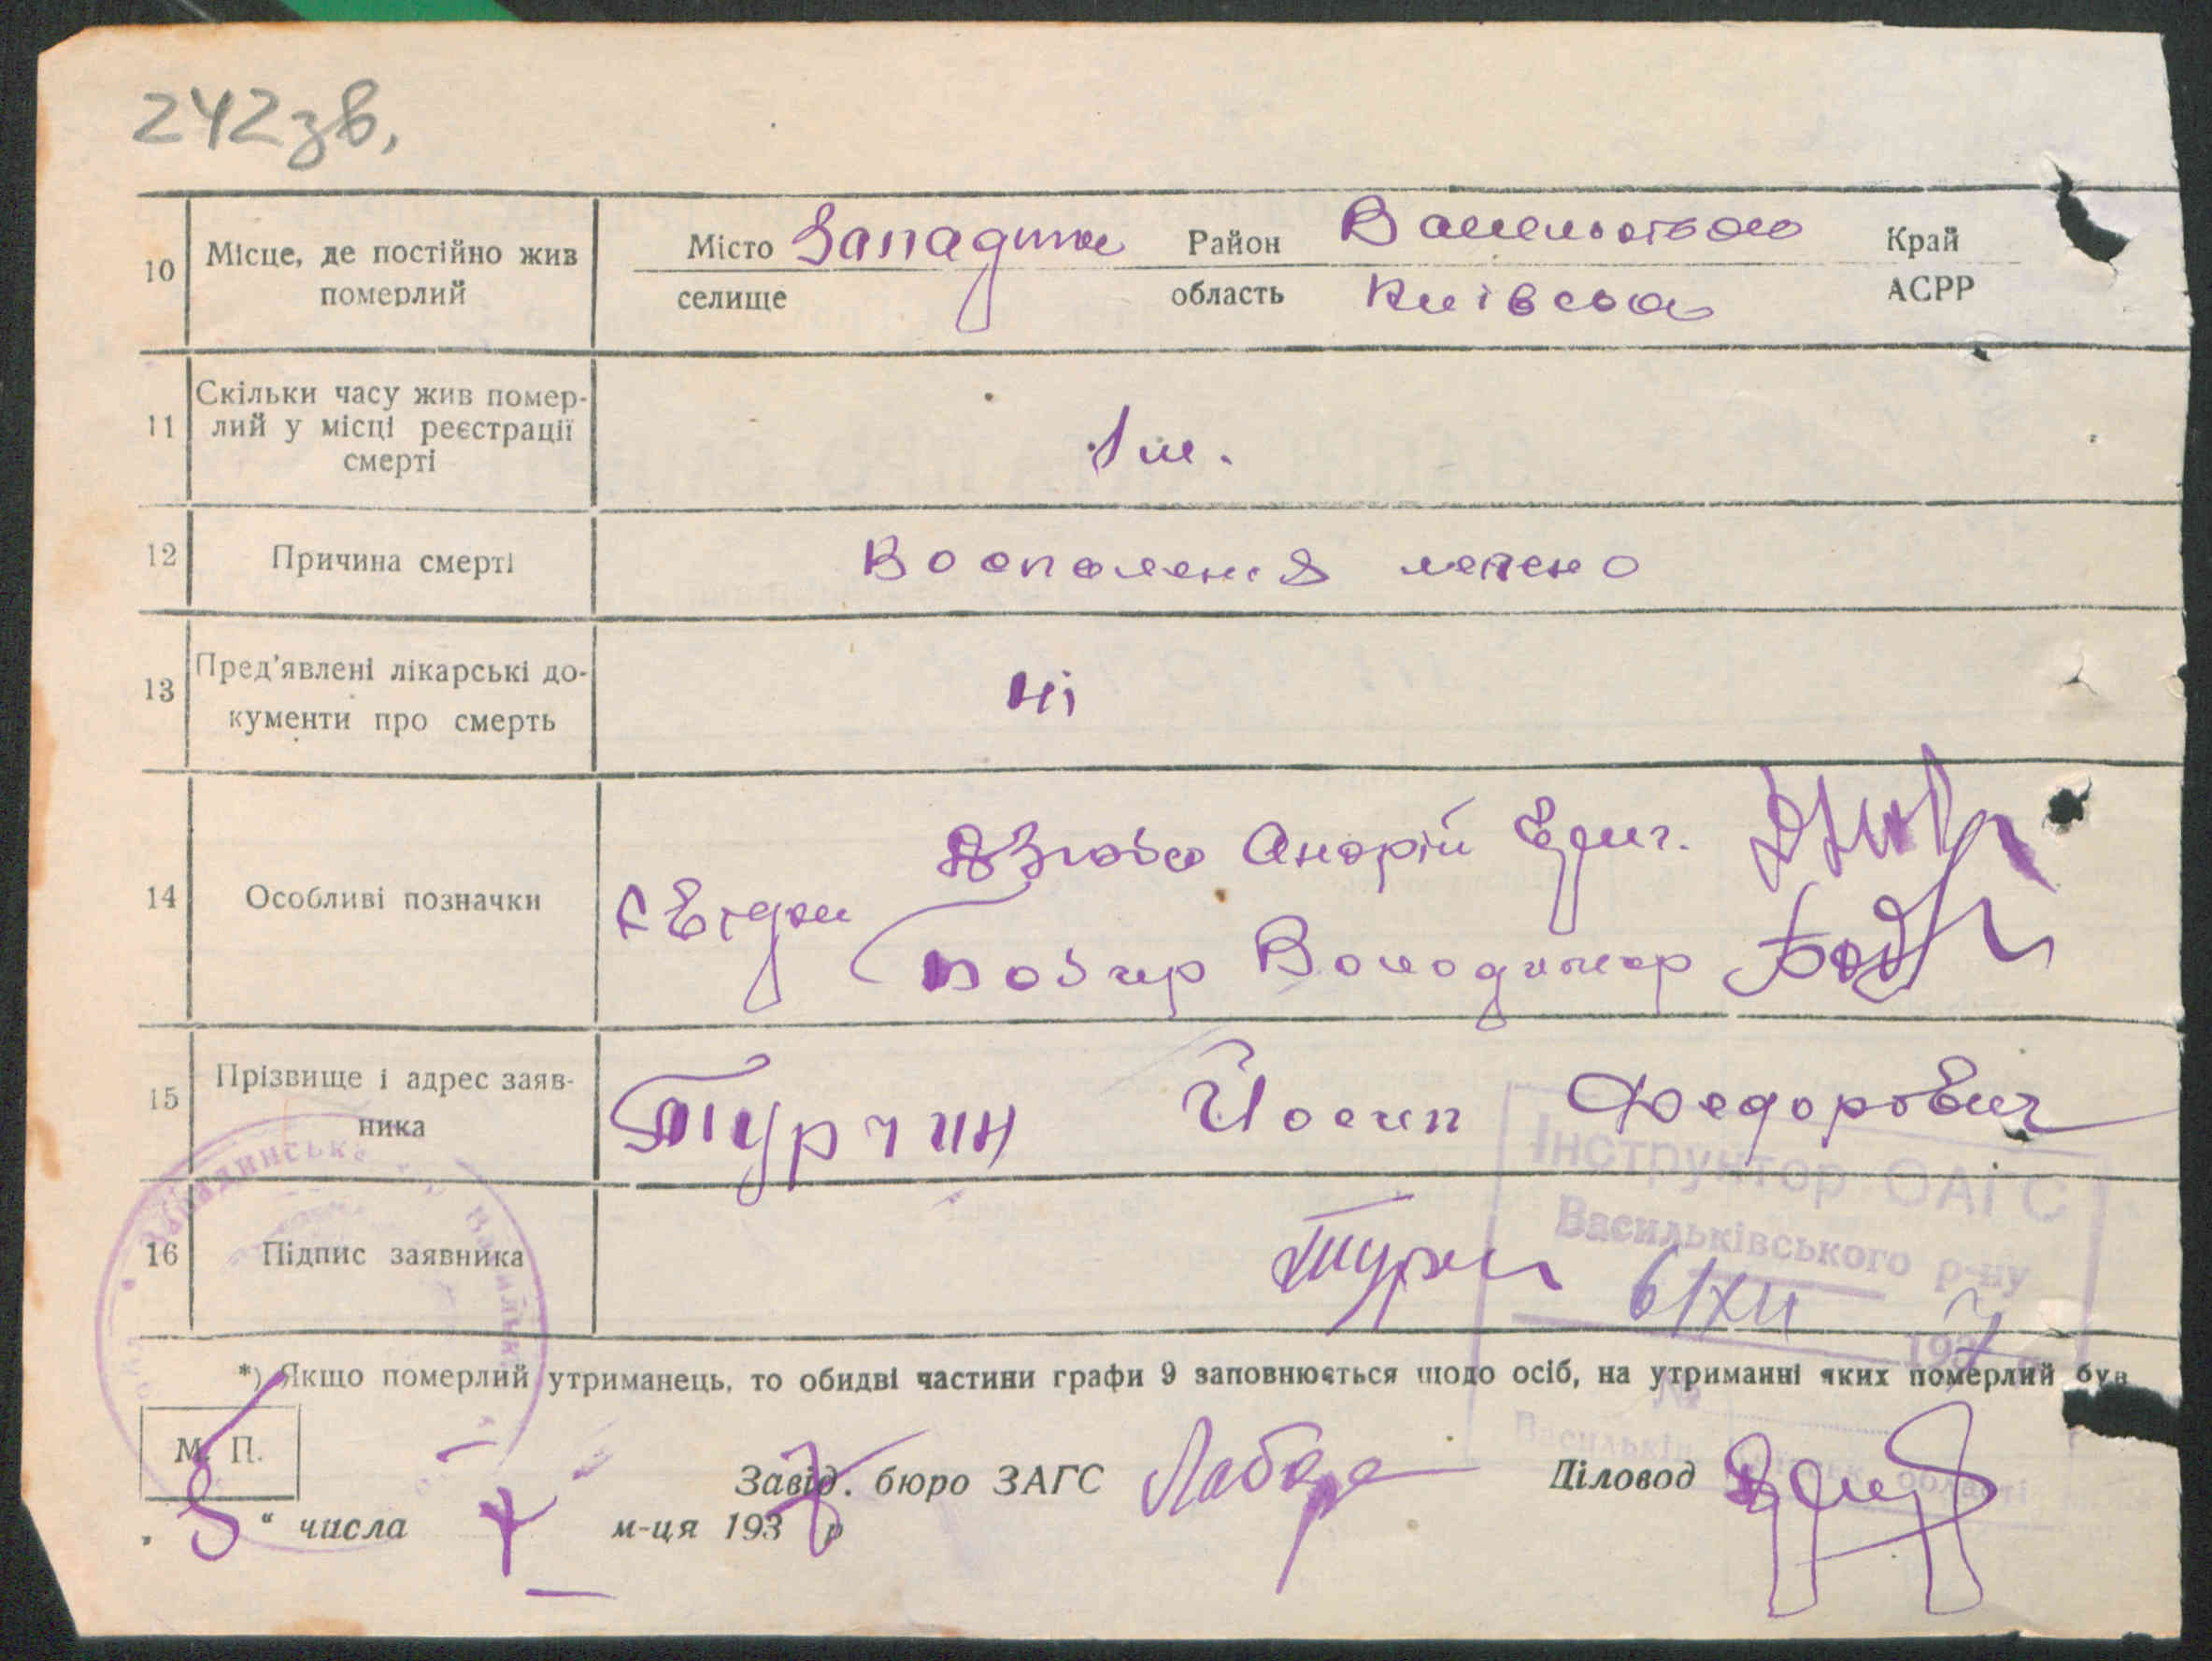 242зв.
10 Місце, де постійно жив померлий
Місто Западинка Район Васильківськ Край
селище область Київська АСРР
11 Скільки часу жив помер-
лий у місці реєстрації
смерті
1 м.
12 Причина смерті Воспаления легено
13 Пред'явлені лікарські до-
кументи про смерть
ні
14 Особливі позначки
Дзюба Андрій
Свідки
Бобир Володимир
15 Прізвище і адрес заяв-
ника
Турчин Йосип Федорович
Інструктор ОАГС
16 Підпис заявника
Турчи
Васильківського р-ну
6/XII 1937
*) Якщо померлий утриманець, то обидві частини графи 9 заповнюється щодо осіб, на утриманні яких померлий був
М. П.
Завід. бюро ЗАГС Діловод
„ 8 “ числа м-ця 1937 р